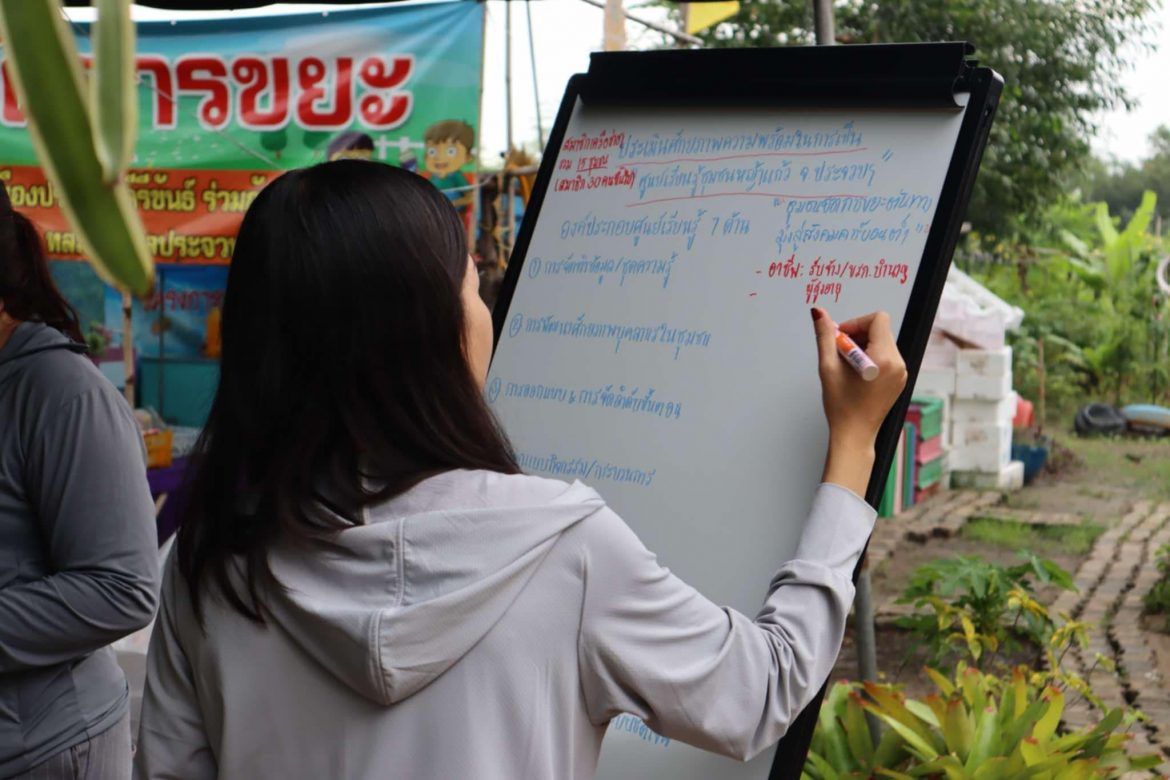 การขยะ
ร่วม
สมาชิกเครือข่าย
รวม 15 ชุมชน
(สมาชิก 30 คนขึ้นไป)
ประเมินศักยภาพความพร้อมในการเป็น
ศูนย์เรียนรู้ชุมชนหญ้าแก้ว จ.ประจวบฯ
องค์ประกอบศูนย์เรียนรู้ 7 ด้าน
① การจัดทำข้อมูล/ชุดความรู้
② การพัฒนาศักยภาพบุคลากรในชุมชน
③ การออกแบบ & การจัดลำดับขั้นตอน
แบบกิจกรรม/กระบวนการ
"ชุมชนจัดการขยะต้นทาง
มุ่งสู่สังคมคาร์บอนต่ำ"
- อาชีพ: รับจ้าง/ขรก. บำนาญ
ผู้สูงอายุ
-